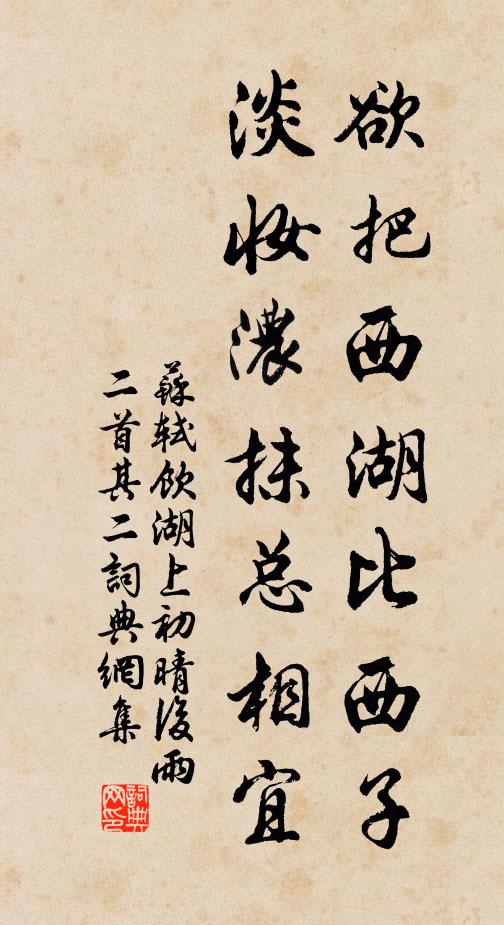 欲把西湖比西子
淡妝濃抹总相宜
蘇軾飲湖上初晴後雨
二首其二詞典網集
詞典
网印